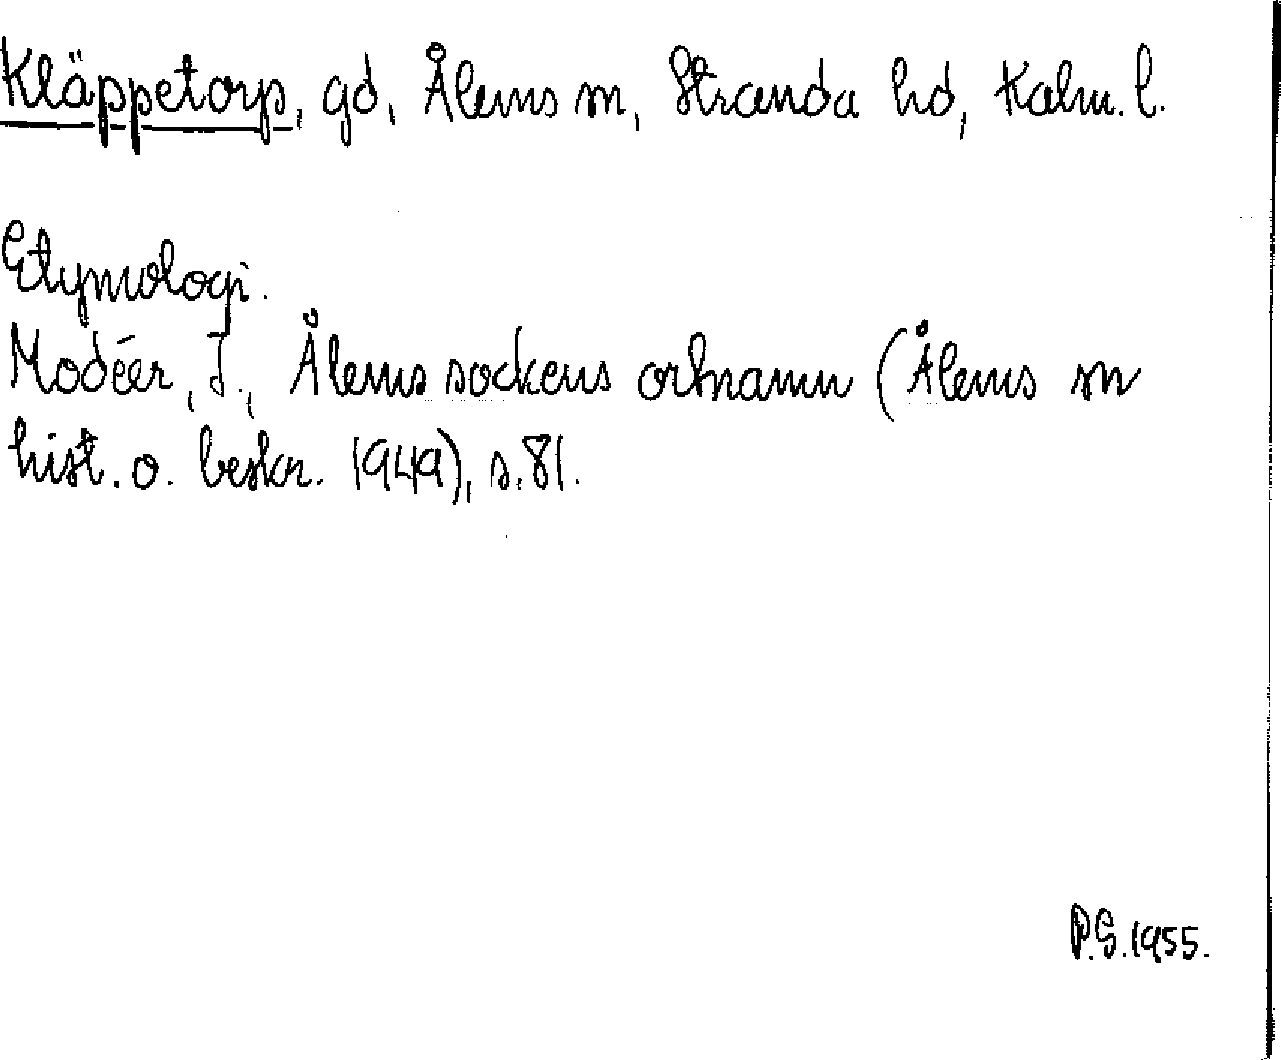 Kläppetorp, gd, Ålems sn, Stranda hd, Kalm. l.
Etymologi.
Modéer, I., Ålems sockens ortnamn (Ålems sn
hist. o. beskr. 1949), s. 81.
P.G. 1955.